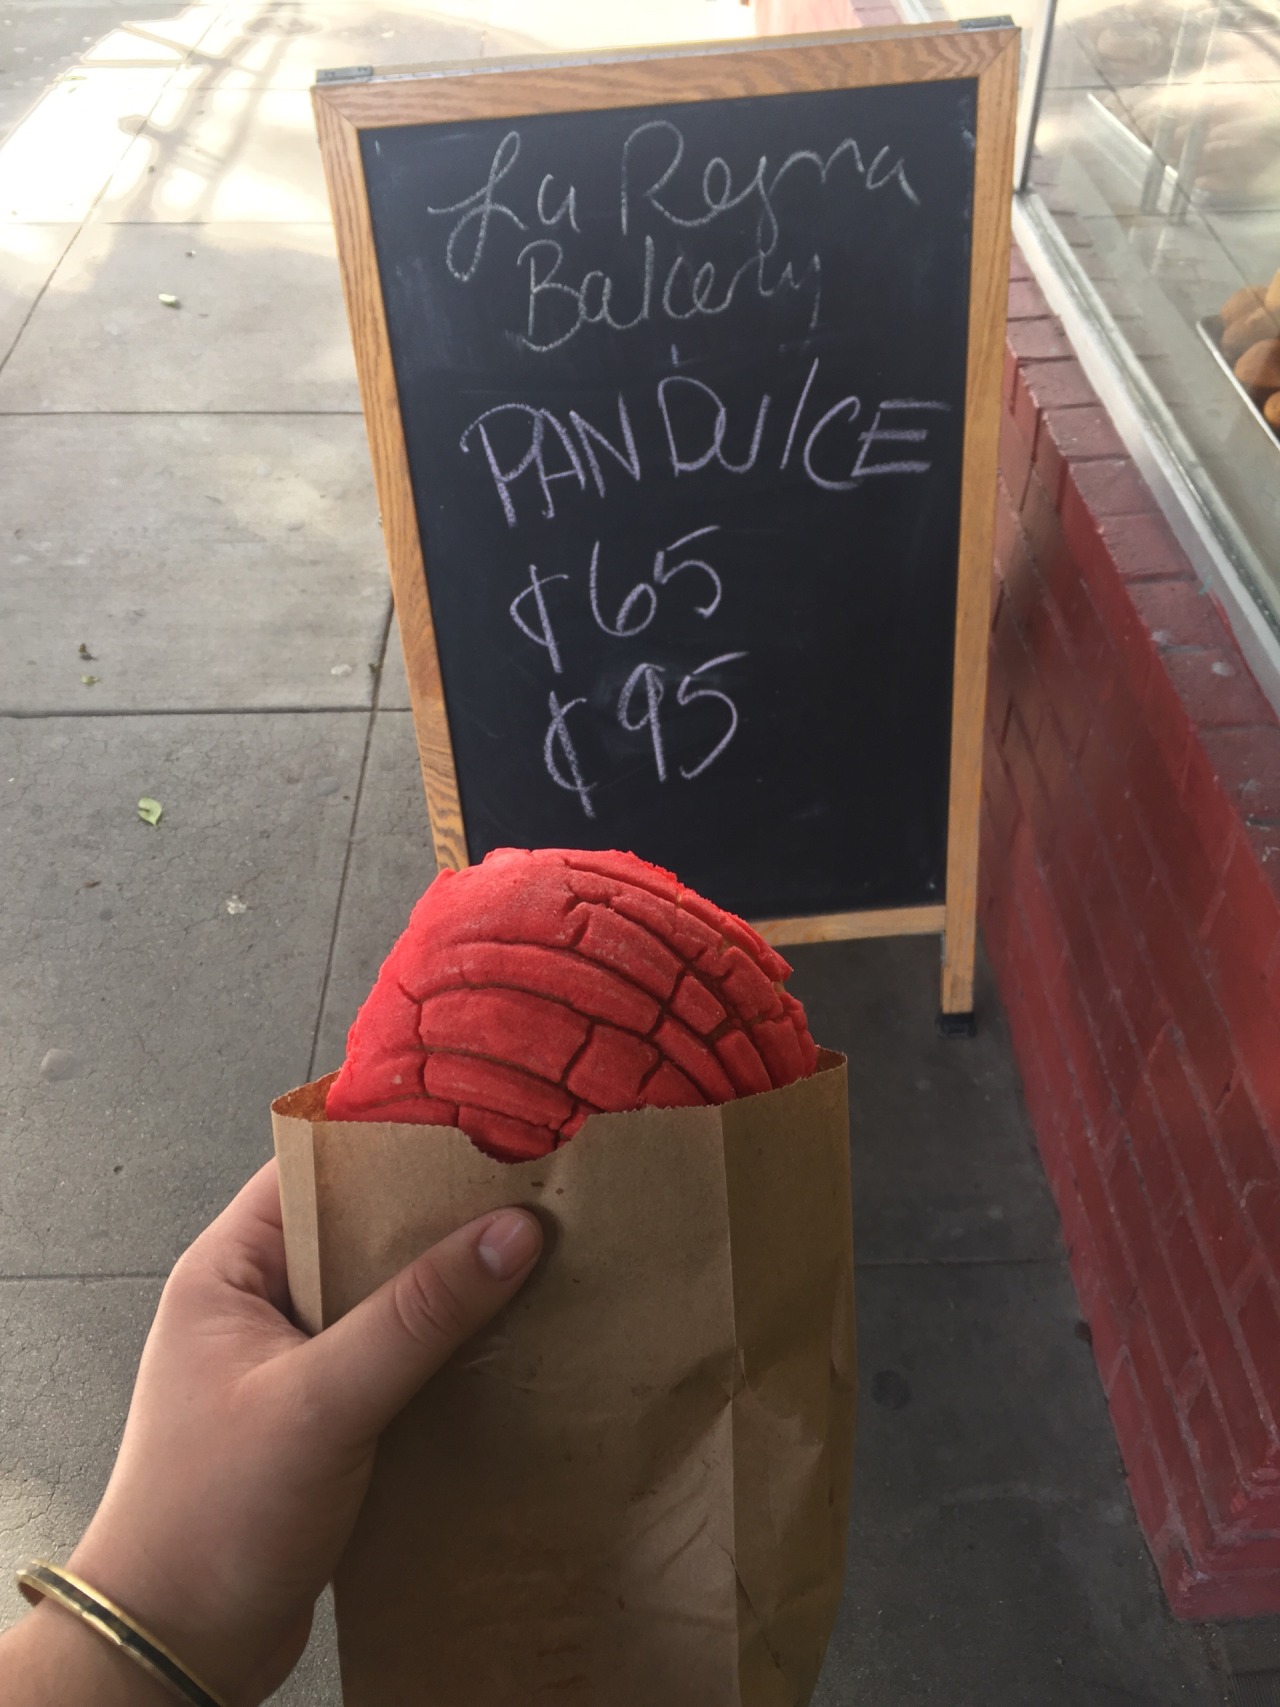 La Reyna
Bakery
PAN DulCE
¢65
¢95